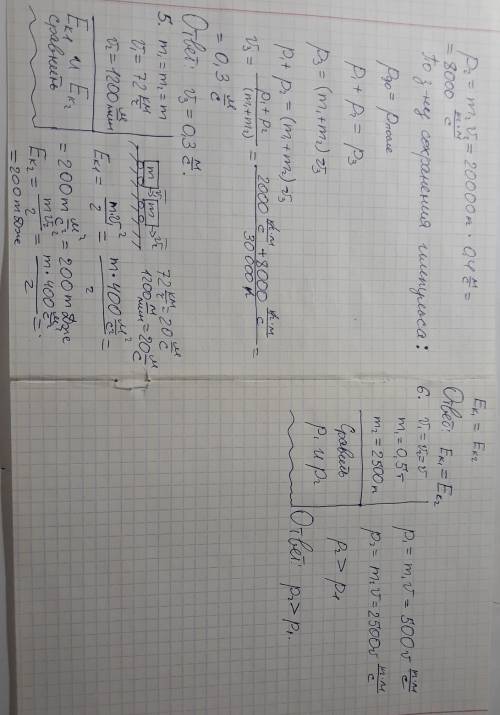 p₂ = m₂v̄ = 20000к · 0,4 м/с =
= 8000 к·м/с
По з-ну сохранения импульса:
pдо = pпосле
p₁ + p₂ = p₃
p₃ = (m₁+m₂)v̄₃
p₁ + p₂ = (m₁+m₂)v̄₃
v̄₃ = (p₁+p₂)/(m₁+m₂) = (2000 к·м/с + 8000 к·м/с)/30 000 к =
= 0,3 м/с
Ответ: v̄₃ = 0,3 м/с.
5. m₁ = m₂ = m
v̄₁ = 72 км/ч
v̄₂ = 1200 м/мин
Сравнить
Eк₁ и Eк₂
m m v̄₂
72 км/ч = 20 м/с
1200 м/мин = 20 м/с
Eк₁ = mv̄₁²/2 = m·400 м²/с²/2 =
= 200 m м²/с² = 200 m Дж
Eк₂ = mv̄₂²/2 = m·400 м²/с²/2 =
= 200 m Дж
Eк₁ = Eк₂
Ответ: Eк₁ = Eк₂
6. v̄₁ = v̄₂ = v̄
m₁ = 0,5 т
m₂ = 2500 к
Сравнить
p₁ и p₂
p₁ = m₁v̄ = 500v̄ к·м/с
p₂ = m₂v̄ = 2500v̄ к·м/с
p₂ > p₁
Ответ: p₂ > p₁.